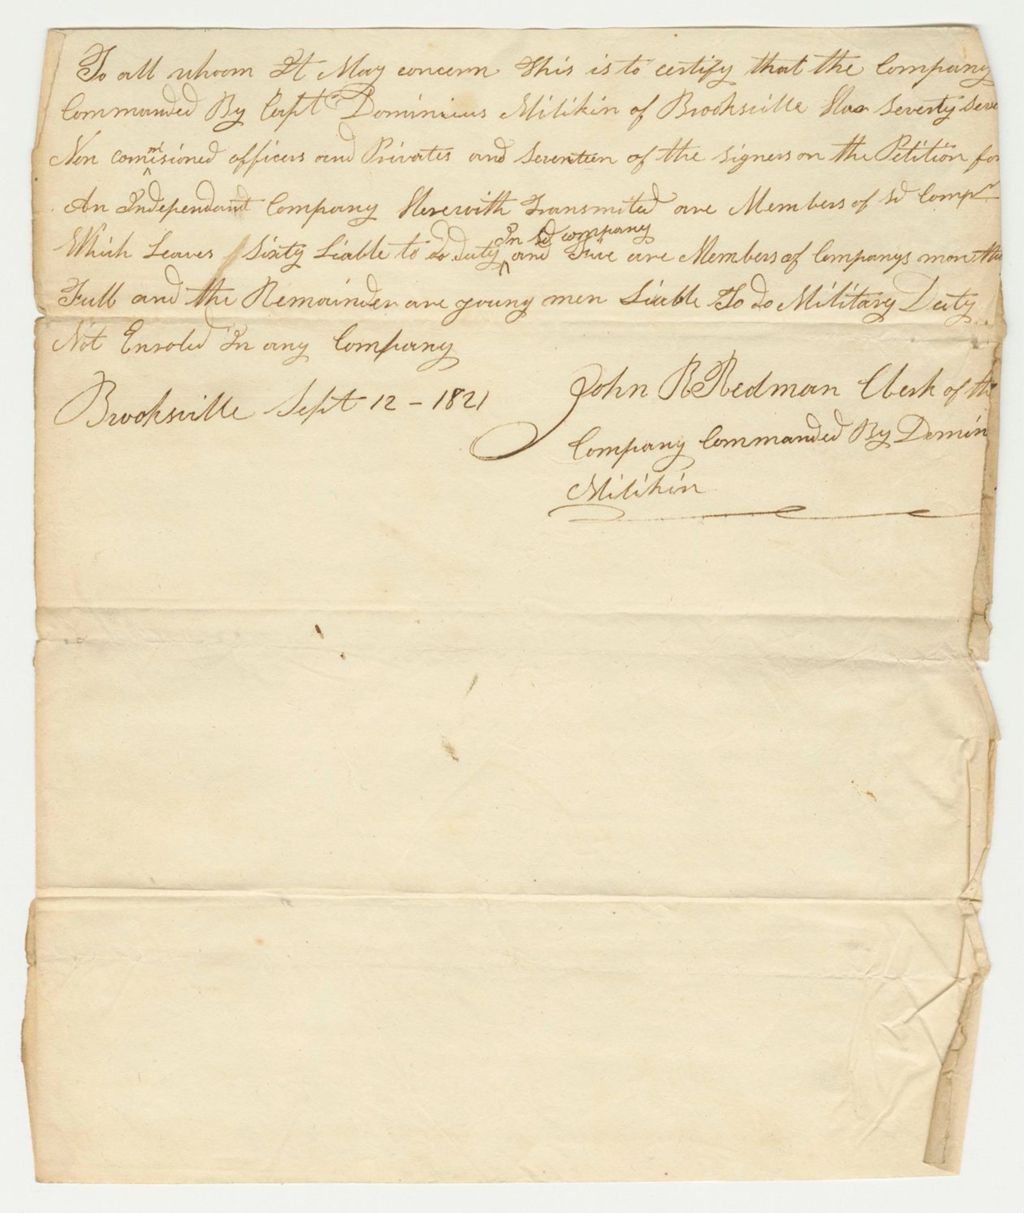 To all whom It May concern This is to certify that the Company
Commanded By Capt Dominicus Milikin of Brooksville Has Seventy Seve
Non commisioned officers and Privates and Seventeen of the signers on the Petition for
An Independant Company Herewith Transmited are Members of sd Compn
Which Leaves Sixty Liable to do Duty In sd company and Five are Members of Companys more than
Full and the Remainder are young men Liable To do Military Duty
Not Enroled In any Company
Brooksville Sept 12 - 1821
John R Redman Clerk of the
Company Commanded By Domin
Milikin